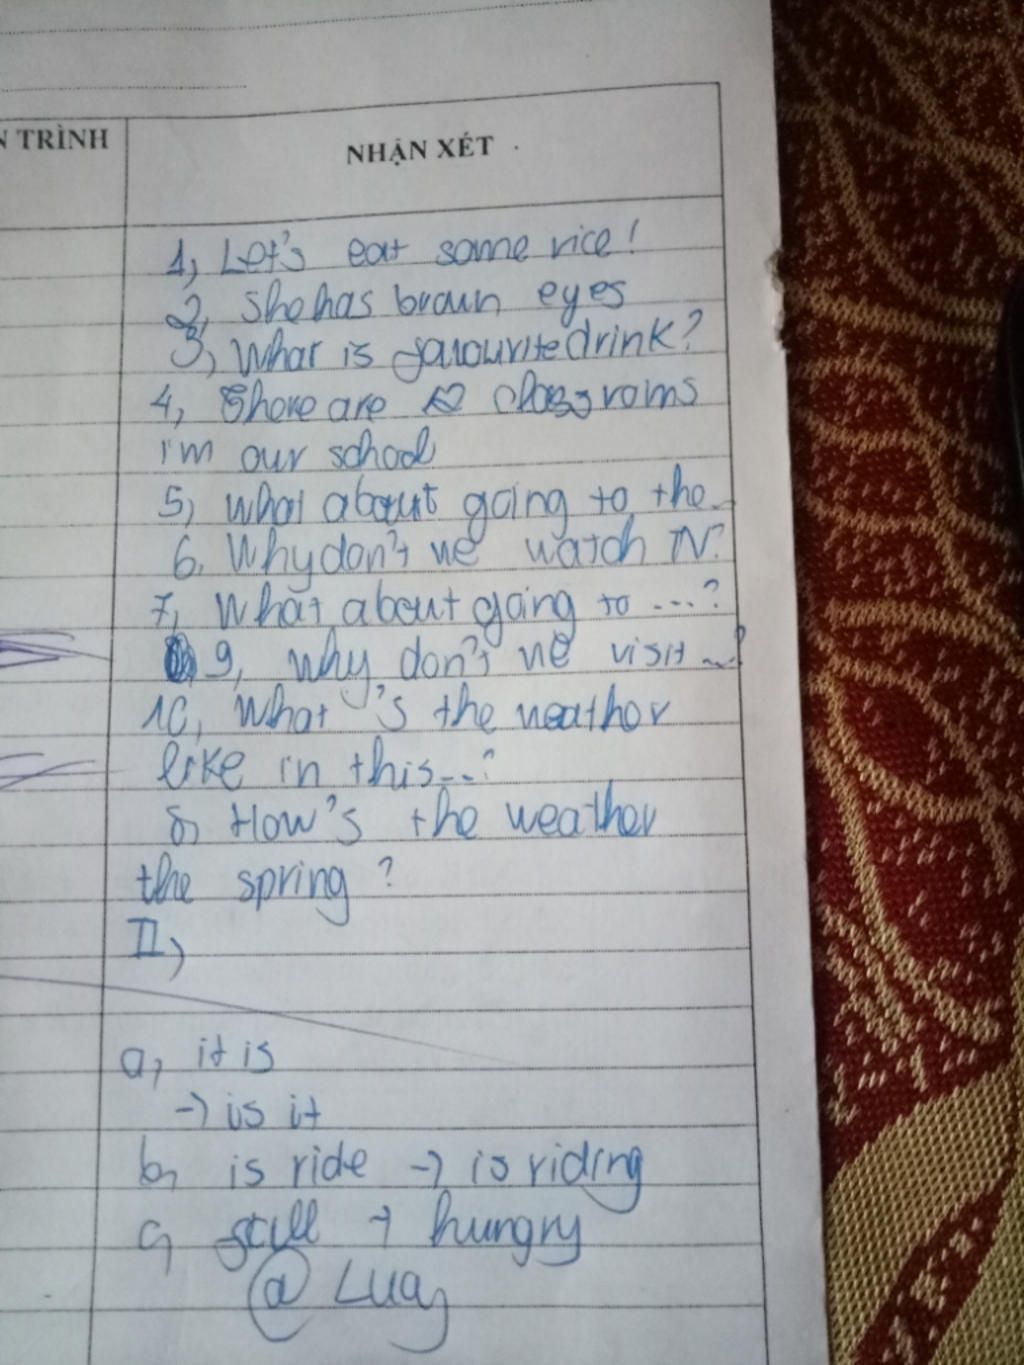 N TRÌNH
NHẬN XÉT
1, Let's eat some rice!
2, She has brown eyes
3, What is favourite drink?
4, There are classrooms
i'm our school
5, What about going to the
6, Why don't we watch TV?
7, What about going to ...?
9, Why don't we visit ...?
10, What's the weather
like in this...?
8, How's the weather
the spring?
II,
a, it is
-> is it
b, is ride -> is riding
c, still -> hungry
@ Luay